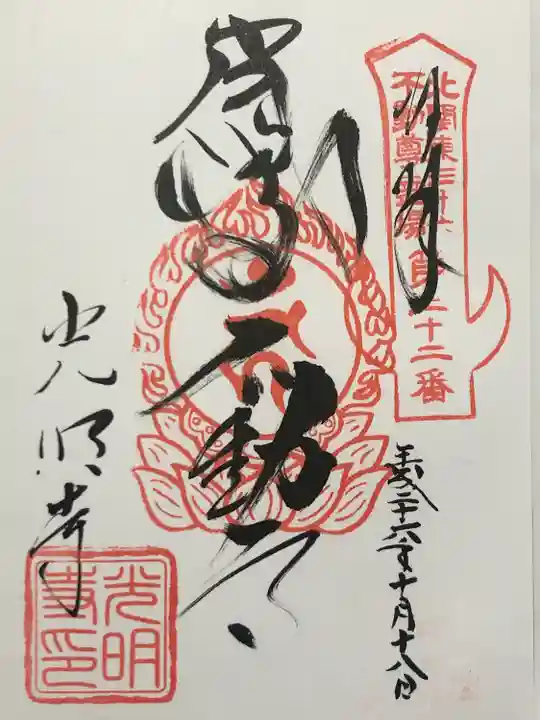 奉拝
北関東三十六
不動尊霊場
第二十二番
不動尊
平成二十六年十月十八日
光明寺
光明
寺印